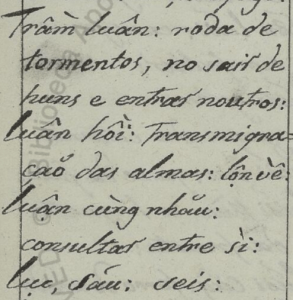 Trầm luân: roda de
tormentos, no sair de
huns e entrar noutros:
luân hồi: Transmigra=
caõ das almas: lộn vê:
luận cùng nhău:
consultar entre si:
luc, sáu: seis: